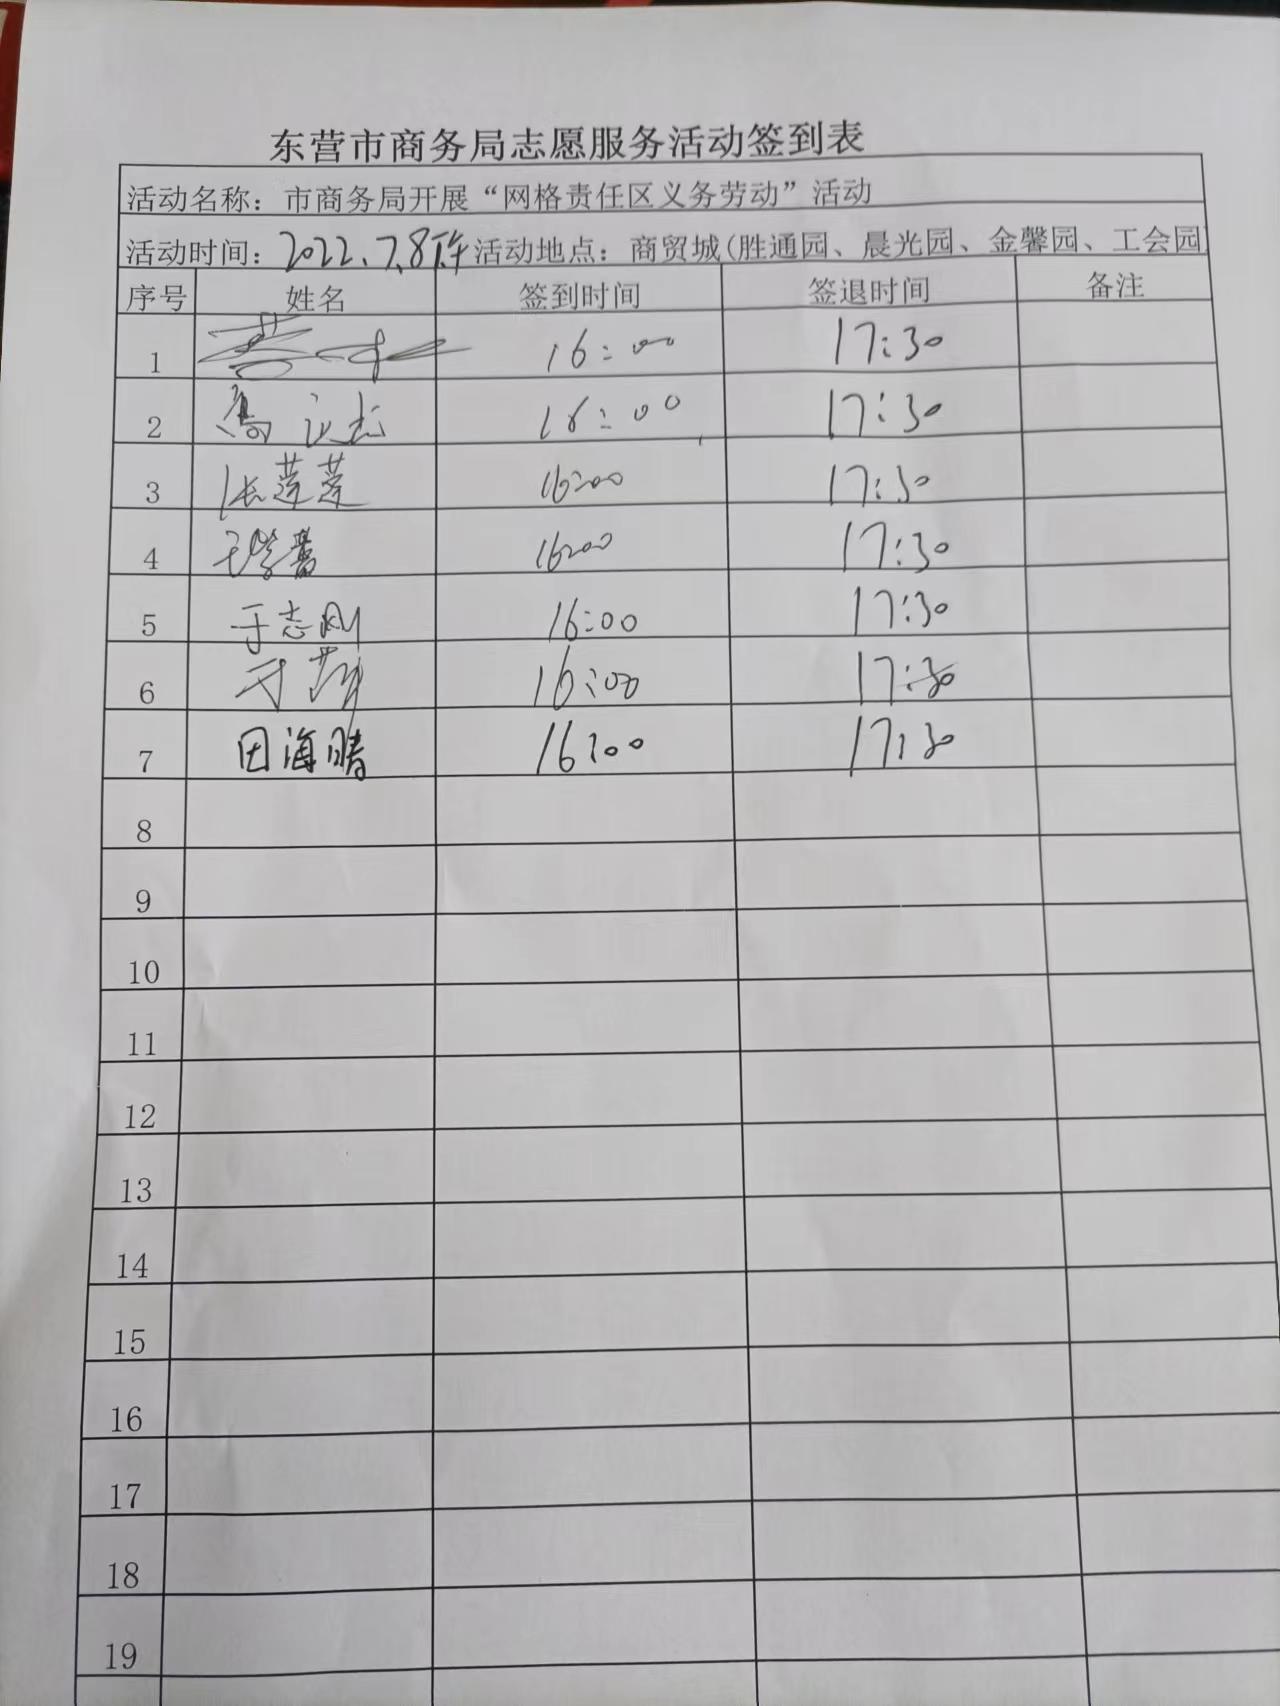 东营市商务局志愿服务活动签到表
活动名称：市商务局开展“网格责任区义务劳动”活动
活动时间：2022.7.8下午 活动地点：商贸城(胜通园、晨光园、金馨园、工会园
序号 姓名 签到时间 签退时间 备注
1 16:00 17:30
2 高 16:00 17:30
3 张莲莲 16:00 17:30
4 16:00 17:30
5 于志刚 16:00 17:30
6 于萍 16:00 17:30
7 田海晴 16:00 17:30
8
9
10
11
12
13
14
15
16
17
18
19